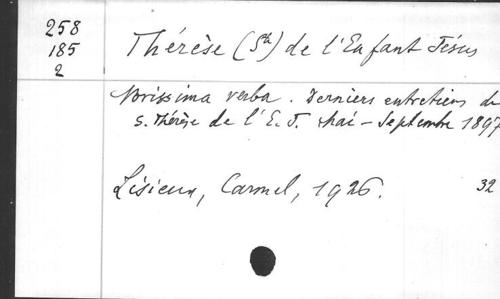 258
185
2
Thérèse (Ste) de l'Enfant Jésus
Novissima verba. Derniers entretiens de
S. Thérèse de l'E. J. Mai - Septembre 1897
Lisieux, Carmel, 1926.
32